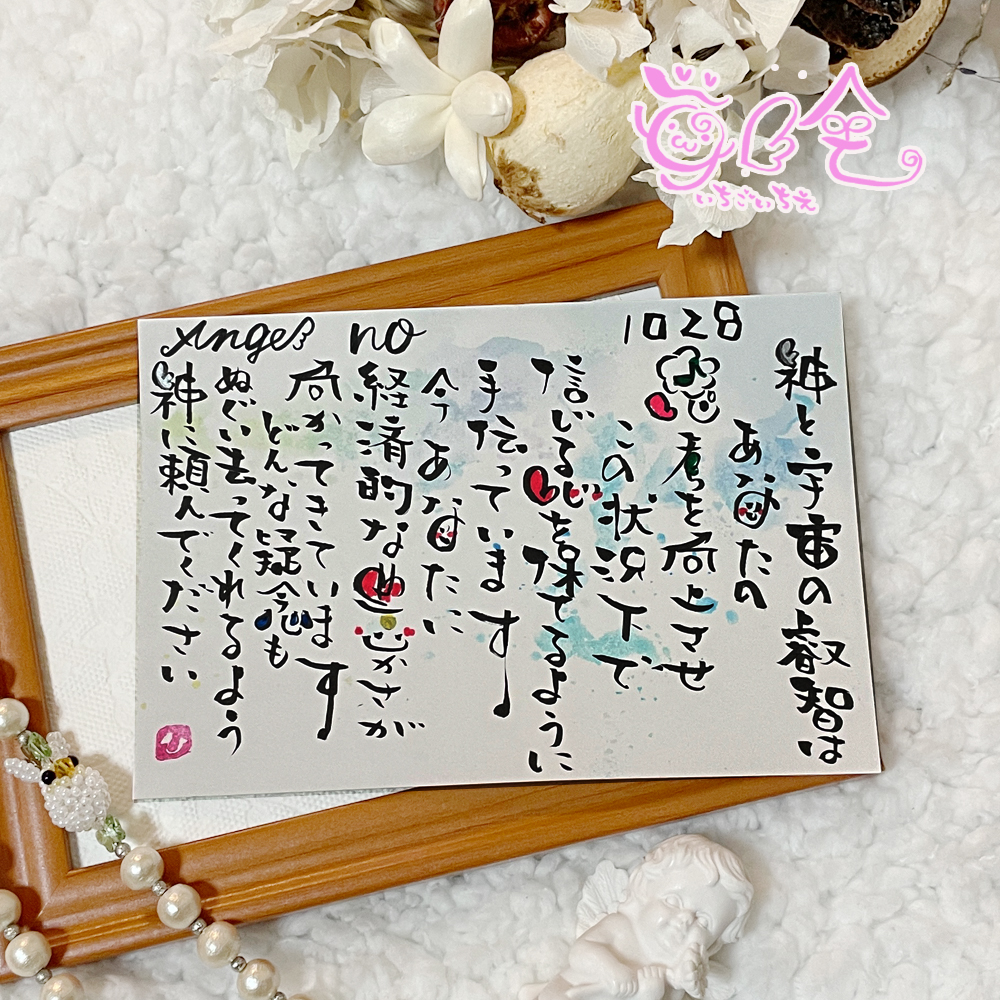 Angel no 1028
神と宇宙の叡智は
あなたの
思考を向上させ
この状況下で
信じる心を保てるように
手伝っています
今あなたに
経済的な豊かさが
向かってきています
どんな疑念も
ぬぐい去ってくれるよう
神に頼んでください
いちごいちえ